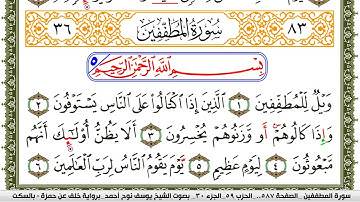 ٨٣ سُورَةُ المُطَفِّفِينَ ٣٦
بِسْمِ ٱللَّهِ ٱلرَّحْمَٰنِ ٱلرَّحِيمِ
وَيْلٌ لِّلْمُطَفِّفِينَ ١ ٱلَّذِينَ إِذَا ٱكْتَالُوا۟ عَلَى ٱلنَّاسِ يَسْتَوْفُونَ ٢
وَإِذَا كَالُوهُمْ أَو وَّزَنُوهُمْ يُخْسِرُونَ ٣ أَلَا يَظُنُّ أُو۟لَٰٓئِكَ أَنَّهُم
مَّبْعُوثُونَ ٤ لِيَوْمٍ عَظِيمٍ ٥ يَوْمَ يَقُومُ ٱلنَّاسُ لِرَبِّ ٱلْعَٰلَمِينَ ٦
سورة المطففين .. الصفحة ٥٨٧.. الحزب ٥٩.. الجزء ٣٠.. بصوت الشيخ يوسف نوح احمد برواية خلف عن حمزة - بالسكت